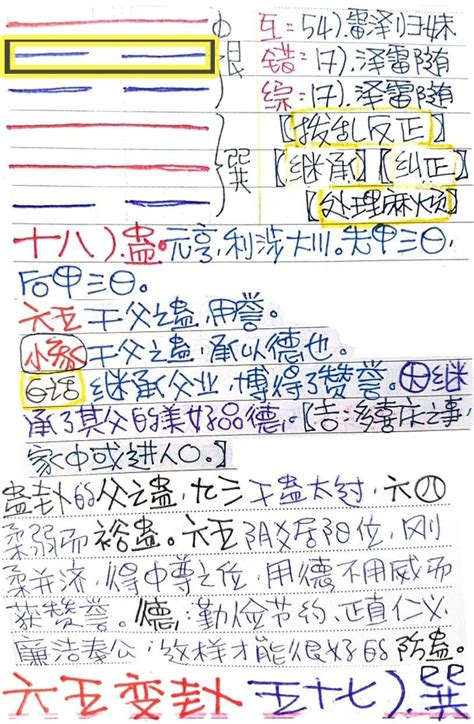 艮
巽
互：54).雷泽归妹
错：17).泽雷随
综：17).泽雷随
【拨乱反正】
【继承】【纠正】
【处理麻烦】
十八).蛊。元亨,利涉大川。先甲三日,
后甲三日。
六五 干父之蛊,用誉。
小象 干父之蛊,承以德也。
白话 继承父业,博得了赞誉。因继
承了其父的美好品德。【吉:多喜庆之事
家中或进人口。】
蛊卦的父之蛊,九三干蛊太过,六四
柔弱而裕蛊。六五阴爻居阳位,刚
柔并济,得中尊之位,用德不用威而
获赞誉。德:勤俭节约、正直仁义、
廉洁奉公,这样才能很好的防蛊。
六五变卦五十七).巽